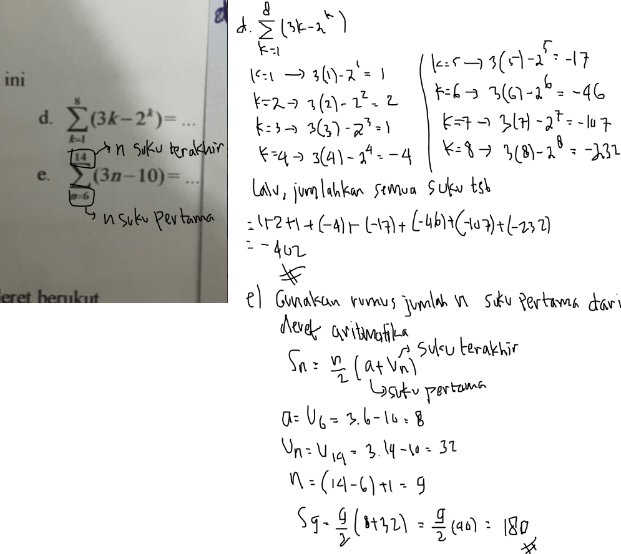 ini
d. ∑ (3k − 2^k) = ... (k=1, 8)
14 → n suku terakhir
e. ∑ (3n − 10) = ...
n=6
→ n suku pertama
eret berikut
d. ∑ (3k − 2^k) (k=1, 8)
k=1 → 3(1) − 2^1 = 1
k=2 → 3(2) − 2^2 = 2
k=3 → 3(3) − 2^3 = 1
k=4 → 3(4) − 2^4 = −4
k=5 → 3(5) − 2^5 = −17
k=6 → 3(6) − 2^6 = −46
k=7 → 3(7) − 2^7 = −107
k=8 → 3(8) − 2^8 = −232
Lalu, jumlahkan semua suku tsb
= 1+2+1+(−4)+(−17)+(−46)+(−107)+(−232)
= −402
e) Gunakan rumus jumlah n suku pertama dari
deret aritmatika
Sn = n/2 (a + Un) → suku terakhir
→ suku pertama
a = U6 = 3.6 − 10 = 8
Un = U14 = 3.14 − 10 = 32
n = (14 − 6) + 1 = 9
S9 = 9/2 (8+32) = 9/2 (40) = 180